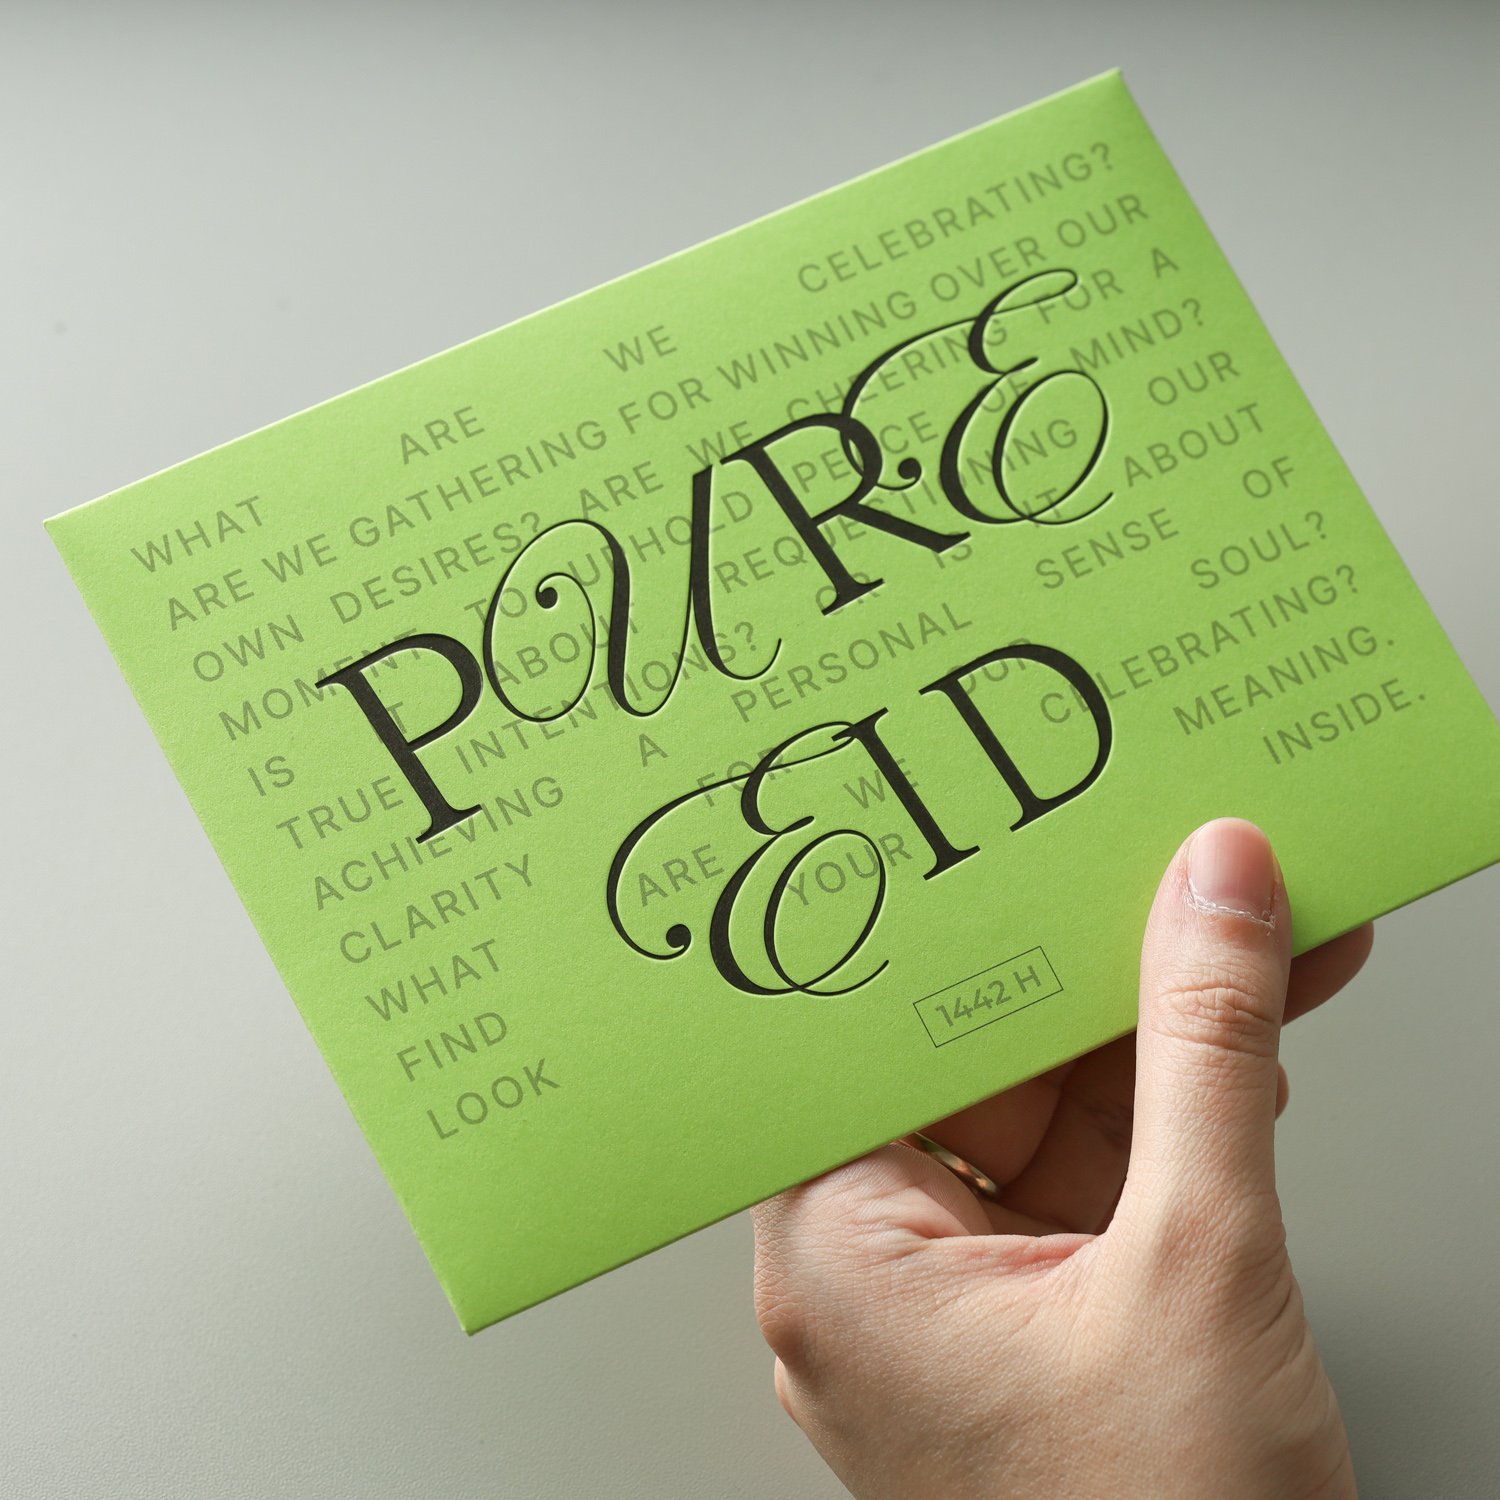 WHAT ARE WE CELEBRATING?
ARE WE GATHERING FOR WINNING OVER OUR
OWN DESIRES? ARE WE CHEERING FOR A
MOMENT TO UPHOLD PEACE OF MIND?
IS IT ABOUT REQUESTIONING OUR
TRUE INTENTIONS? OR IS IT ABOUT
ACHIEVING A PERSONAL SENSE OF
CLARITY FOR OUR SOUL?
WHAT ARE WE CELEBRATING?
FIND YOUR MEANING.
LOOK INSIDE.
PURE
EID
1442 H